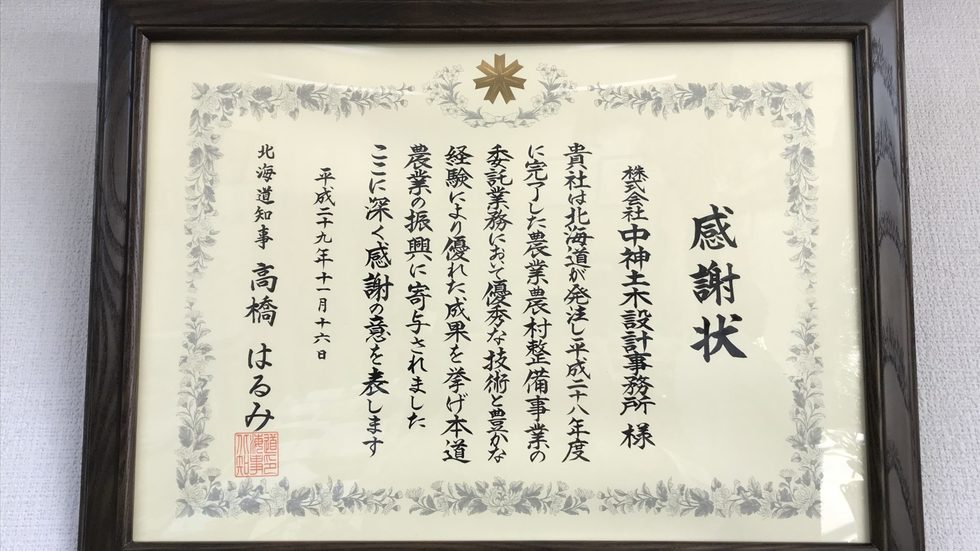 感謝状
株式会社中神土木設計事務所 様
貴社は北海道が発注し平成二十八年度
に完了した農業農村整備事業の
委託業務において優秀な技術と豊かな
経験により優れた成果を挙げ本道
農業の振興に寄与されました
ここに深く感謝の意を表します
平成二十九年十一月十六日
北海道知事 高橋はるみ